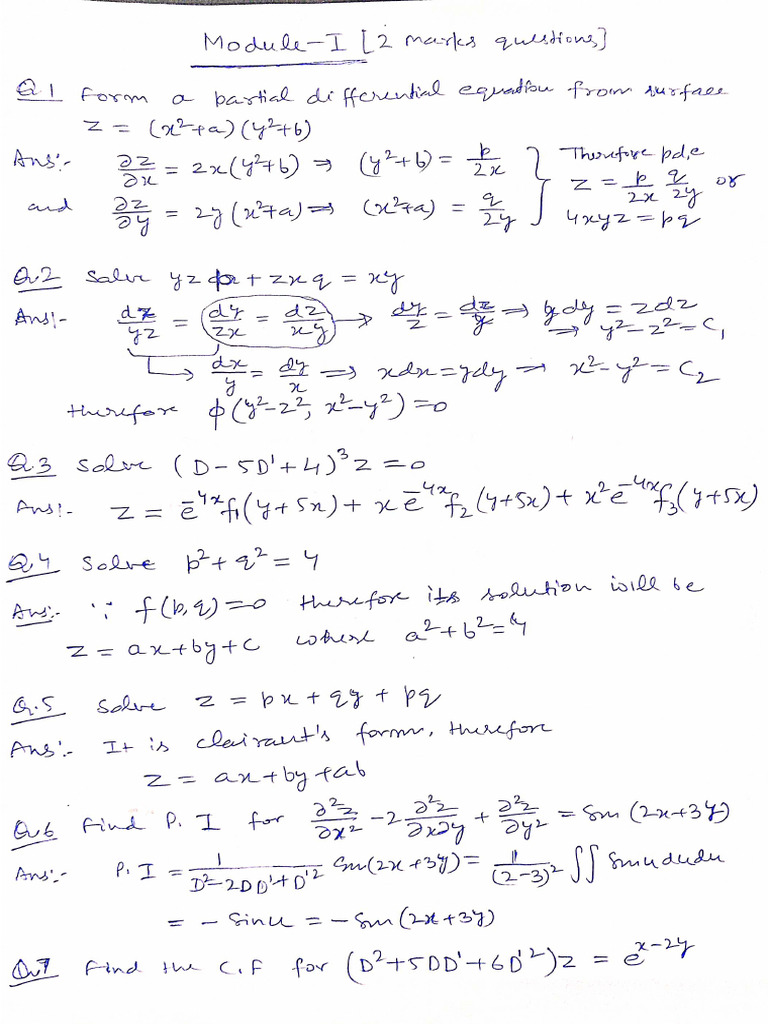 Module-I [2 marks questions]
Q.1 Form a partial differential equation from surface
z = (x²+a)(y²+b)
Ans:- ∂z/∂x = 2x(y²+b) ⇒ (y²+b) = p/2x } Therefore p.d.e
and ∂z/∂y = 2y(x²+a) ⇒ (x²+a) = q/2y } z = p/2x q/2y or
4xyz = pq
Q.2 Solve yzp + zxq = xy
Ans:- dx/yz = dy/zx = dz/xy → dy/z = dz/y ⇒ ydy = zdz
⇒ y²-z² = C₁
→ dx/y = dy/x ⇒ xdx = ydy ⇒ x²-y² = C₂
therefore ϕ(y²-z², x²-y²) = 0
Q.3 Solve (D-5D'+4)³z = 0
Ans:- z = e⁻⁴ˣf₁(y+5x) + x e⁻⁴ˣf₂(y+5x) + x²e⁻⁴ˣf₃(y+5x)
Q.4 Solve p²+q² = 4
Ans:- ∵ f(p,q)=0 therefore its solution will be
z = ax+by+c where a²+b²=4
Q.5 Solve z = px + qy + pq
Ans:- It is clairaut's form, therefore
z = ax+by+ab
Q.6 Find P.I for ∂²z/∂x² - 2 ∂²z/∂x∂y + ∂²z/∂y² = Sin(2x+3y)
Ans:- P.I = 1/(D²-2DD'+D'²) Sin(2x+3y) = 1/(2-3)² ∫∫ Sinu du du
= - Sinu = - Sin(2x+3y)
Q.7 Find the C.F for (D²+5DD'+6D'²)z = eˣ⁻²ʸ